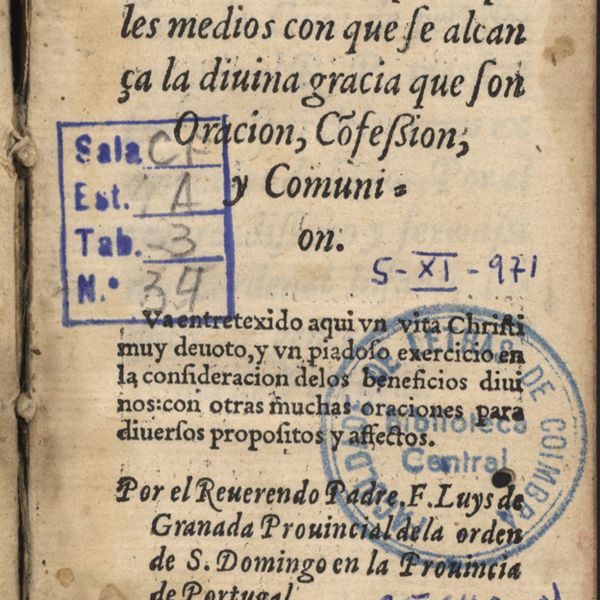 les medios con que ſe alcan
ça la diuina gracia que ſon
Oracion, Cõfeſsion,
y Comuni=
on.
Sala CF
Est.
Tab. 3
N.º 34
5-XI-971
Va entretexido aqui vn vita Chriſti
muy deuoto, y vn piadoſo exercicio en
la conſideracion delos beneficios diui
nos: con otras muchas oraciones para
diuerſos propoſitos y affectos.
DE LETRAS DE COIMBRA
Biblioteca
Central
Por el Reuerendo Padre. F. Luys de
Granada Prouincial dela orden
de S. Domingo en la Prouincia
de Portugal